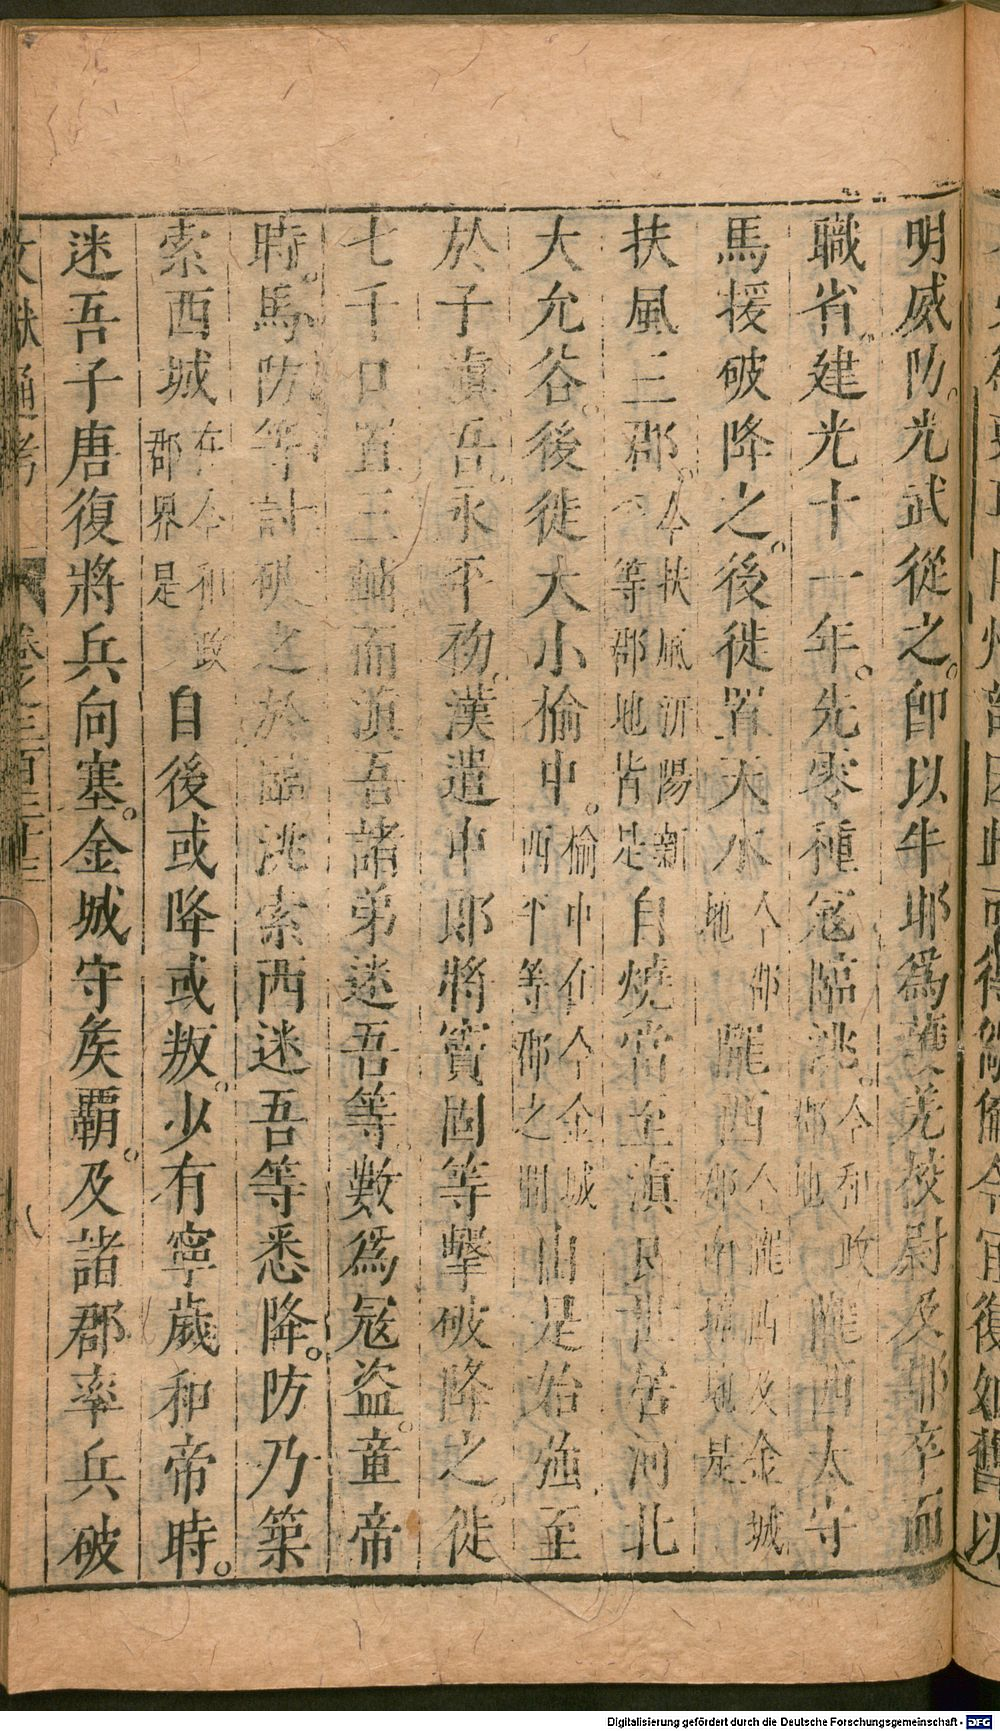 明威防。光武從之。卽以牛邯爲護羌校尉及邯卒而
職省。建光十一年。先零種寇臨洮。今和政郡地隴西太守
馬援破降之。後徙置天水今郡地隴西今隴西及金城郡南境地是
扶風三郡。今扶風汧陽新等郡地皆是自燒當至滇良世居河北
大允谷。後徙大小榆中。榆中在今金城西平等郡之間由是始強至
於子滇吾。永平初。漢遣中郎將竇固等擊破降之。徙
七千口置三輔。而滇吾諸弟迷吾等。數爲寇盜。章帝
時。馬防等討破之於臨洮索西迷吾等悉降。防乃築
索西城在今和政郡界是自後或降或叛。少有寧歲和帝時。
迷吾子唐復將兵向塞。金城守矦覇。及諸郡率兵破
文獻通考 卷之三百三十三
Digitalisierung gefördert durch die Deutsche Forschungsgemeinschaft - DFG